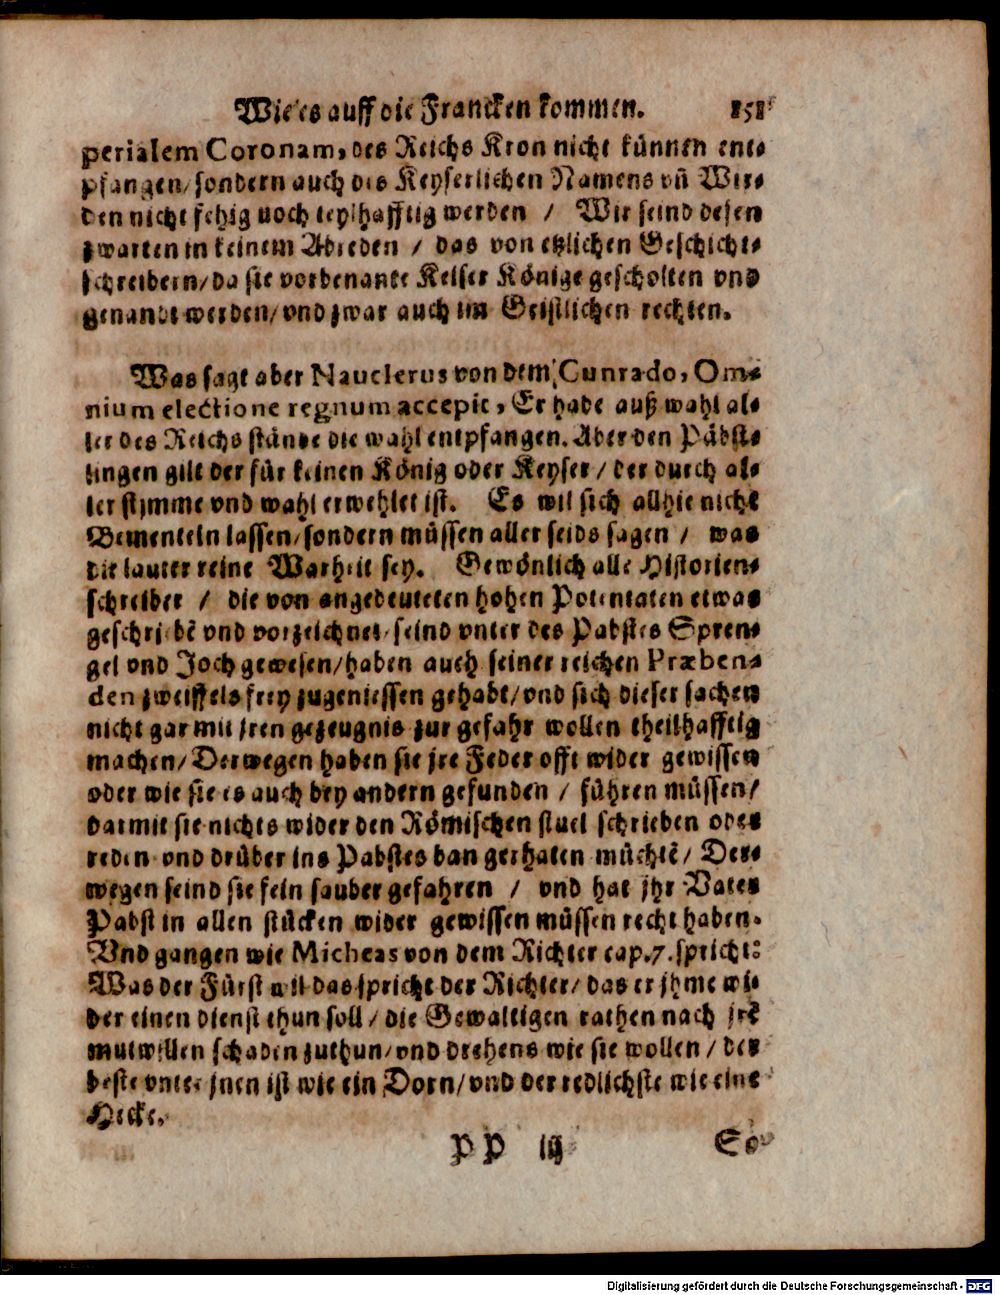 Wie es auff die Francken kommen. 151
perialem Coronam, des Reichs Kron nicht künnen ent⸗
pfangen/ sondern auch des Keyserlichen Namens vñ Wir⸗
den nicht fehig noch teylhafftig werden / Wir seind desen
zwarten in keinem Abreden / das von etzlichen Geschicht⸗
schreibern/ da sie vorbenante Keiser Könige gescholten vnd
genandt werden/ vnd zwar auch im Geistlichen rechten.
Was sagt aber Nauclerus von dem Cunrado, Om⸗
nium electione regnum accepit, Er habe auß wahl al⸗
ler des Reichs stände die wahl entpfangen. Aber den Päbst⸗
lingen gilt der für keinen König oder Keyser / der durch al⸗
ler stimme vnd wahl erwehlet ist. Es wil sich allhie nicht
Bementeln lassen/ sondern müssen aller seids sagen / was
die lauter reine Warheit sey. Gewönlich alle Historien⸗
schreiber / die von angedeuteten hohen Potentaten etwas
geschriebē vnd vorzeichnet/ seind vnter des Pabstes Spren⸗
gel vnd Joch gewesen/ haben auch seiner reichen Præben⸗
den zweiffels frey zugeniessen gehabt/ vnd sich dieser sachen
nicht gar mit jren gezeugnis zur gefahr wollen theilhafftig
machen/ Derwegen haben sie jre Feder offt wider gewissen
oder wie sie es auch bey andern gefunden / führen müssen/
darmit sie nichts wider den Römischen stuel schrieben oder
reden vnd drüber ins Pabstes ban gerhaten müchtē/ Der⸗
wegen seind sie fein sauber gefahren / vnd hat jhr Vater
Pabst in allen stücken wider gewissen müssen recht haben.
Vnd gangen wie Micheas von dem Richter cap. 7. spricht:
Was der Fürst wil das spricht der Richter/ das er jhme wi⸗
der einen dienst thun soll / die Gewaltigen rathen nach jrē
mutwillen schaden zuthun/ vnd drehens wie sie wollen / der
beste vnter jnen ist wie ein Dorn/ vnd der redlichste wie eine
Hecke.
PP iij So
Digitalisierung gefördert durch die Deutsche Forschungsgemeinschaft - DFG